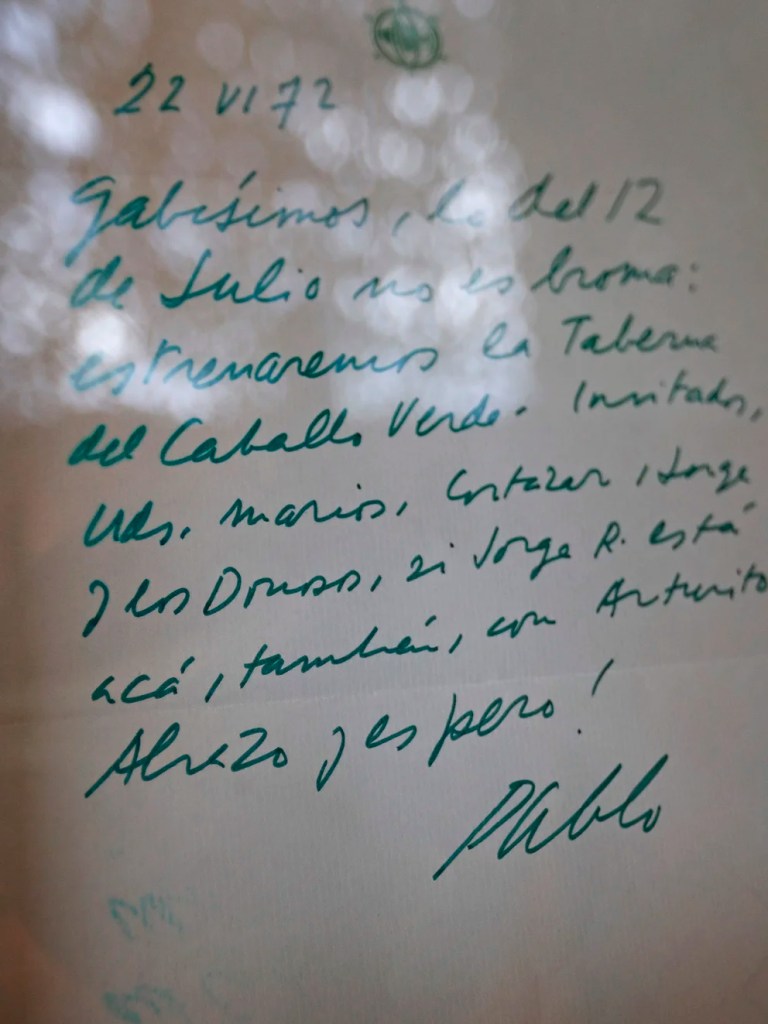 22 VI 72
Gabísimos, lo del 12
de Julio no es broma:
estrenaremos la Taberna
del Caballo Verde. Invitados,
Uds, Marios, Cortazar, Jorge
y los Donoso, si Jorge R. está
acá, también, con Arturito
Abrazo y espero!
Pablo